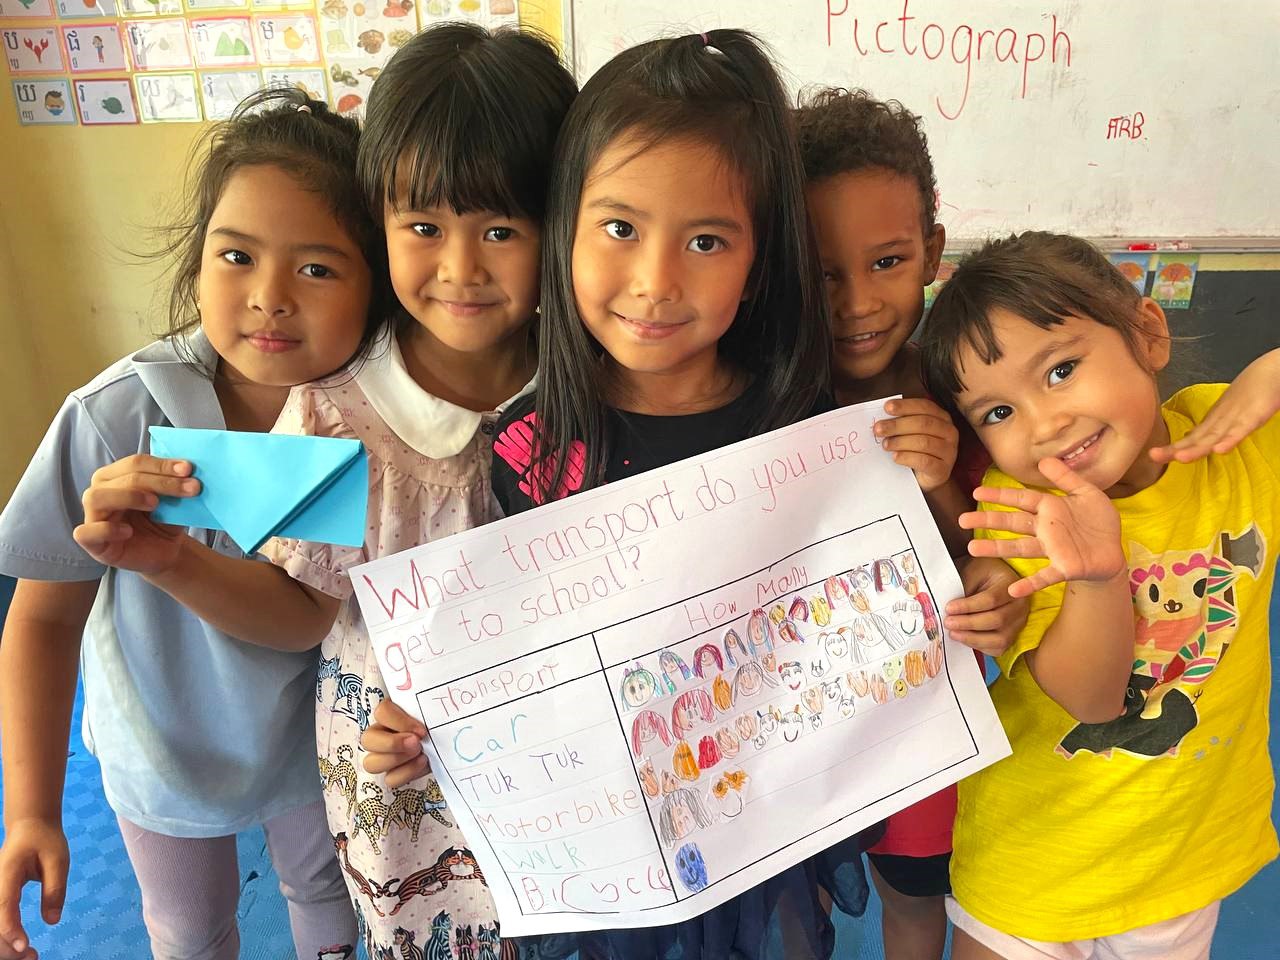 Pictograph
ATRB.
What transport do you use
get to school?
Transport
How Many
Car
Tuk Tuk
Motorbike
Walk
Bicycle